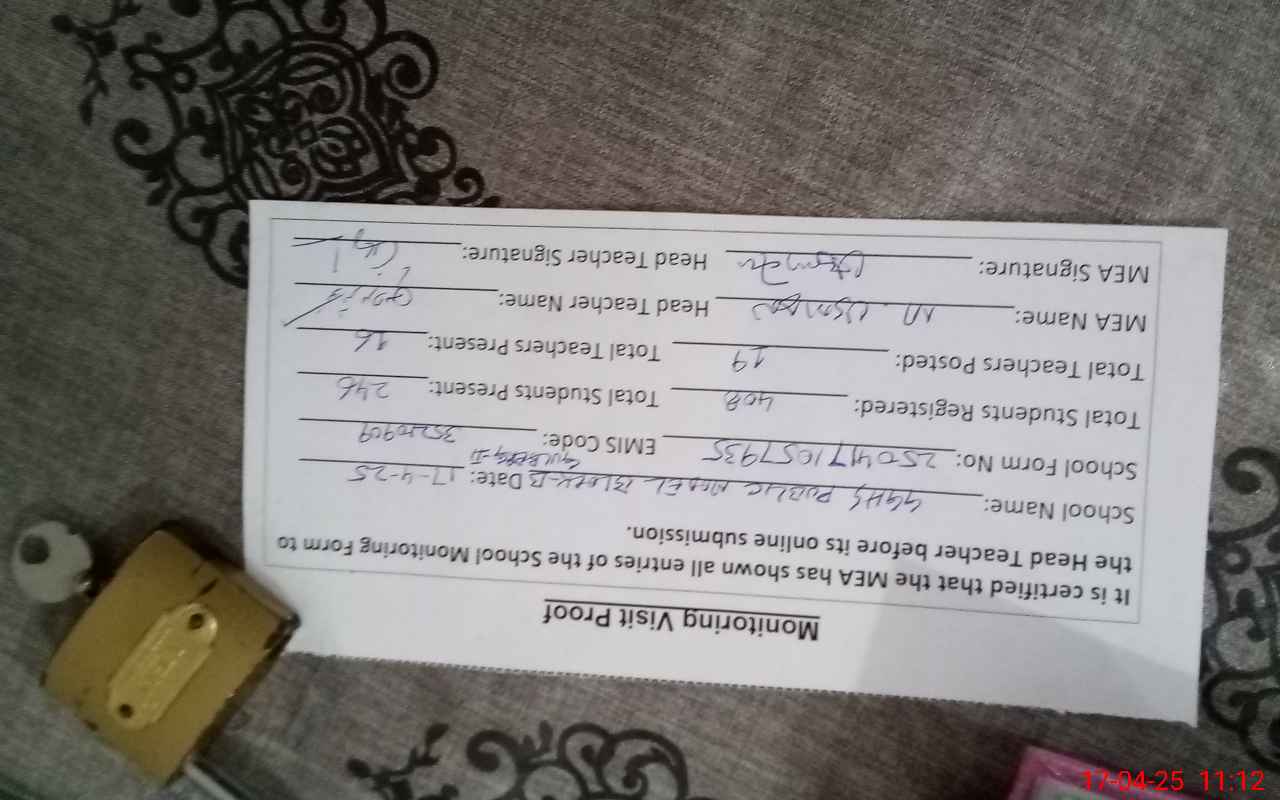 Monitoring Visit Proof
It is certified that the MEA has shown all entries of the School Monitoring Form to
the Head Teacher before its online submission.
School Name: GGHS PUBLIC MODEL BLOCK-B GULBERG-II Date: 17-4-25
School Form No: 2504171057935 EMIS Code: 35210909
Total Students Registered: 408 Total Students Present: 246
Total Teachers Posted: 19 Total Teachers Present: 16
MEA Name: M. Usman Head Teacher Name:
MEA Signature: Usman Head Teacher Signature:
17-04-25 11:12